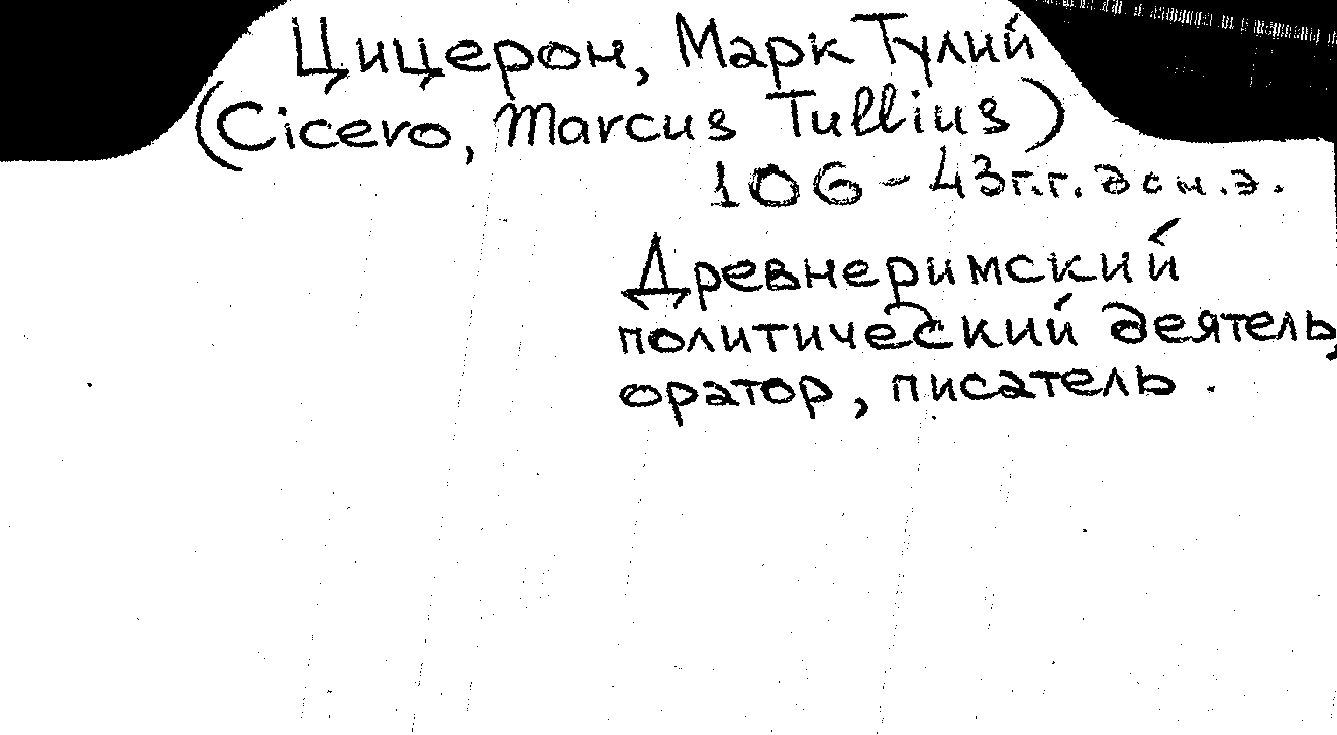 Цицерон, Марк Тулий
(Cicero, Marcus Tullius)
106 - 43 г.г. до н.э.
Древнеримский
политический деятель,
оратор, писатель.